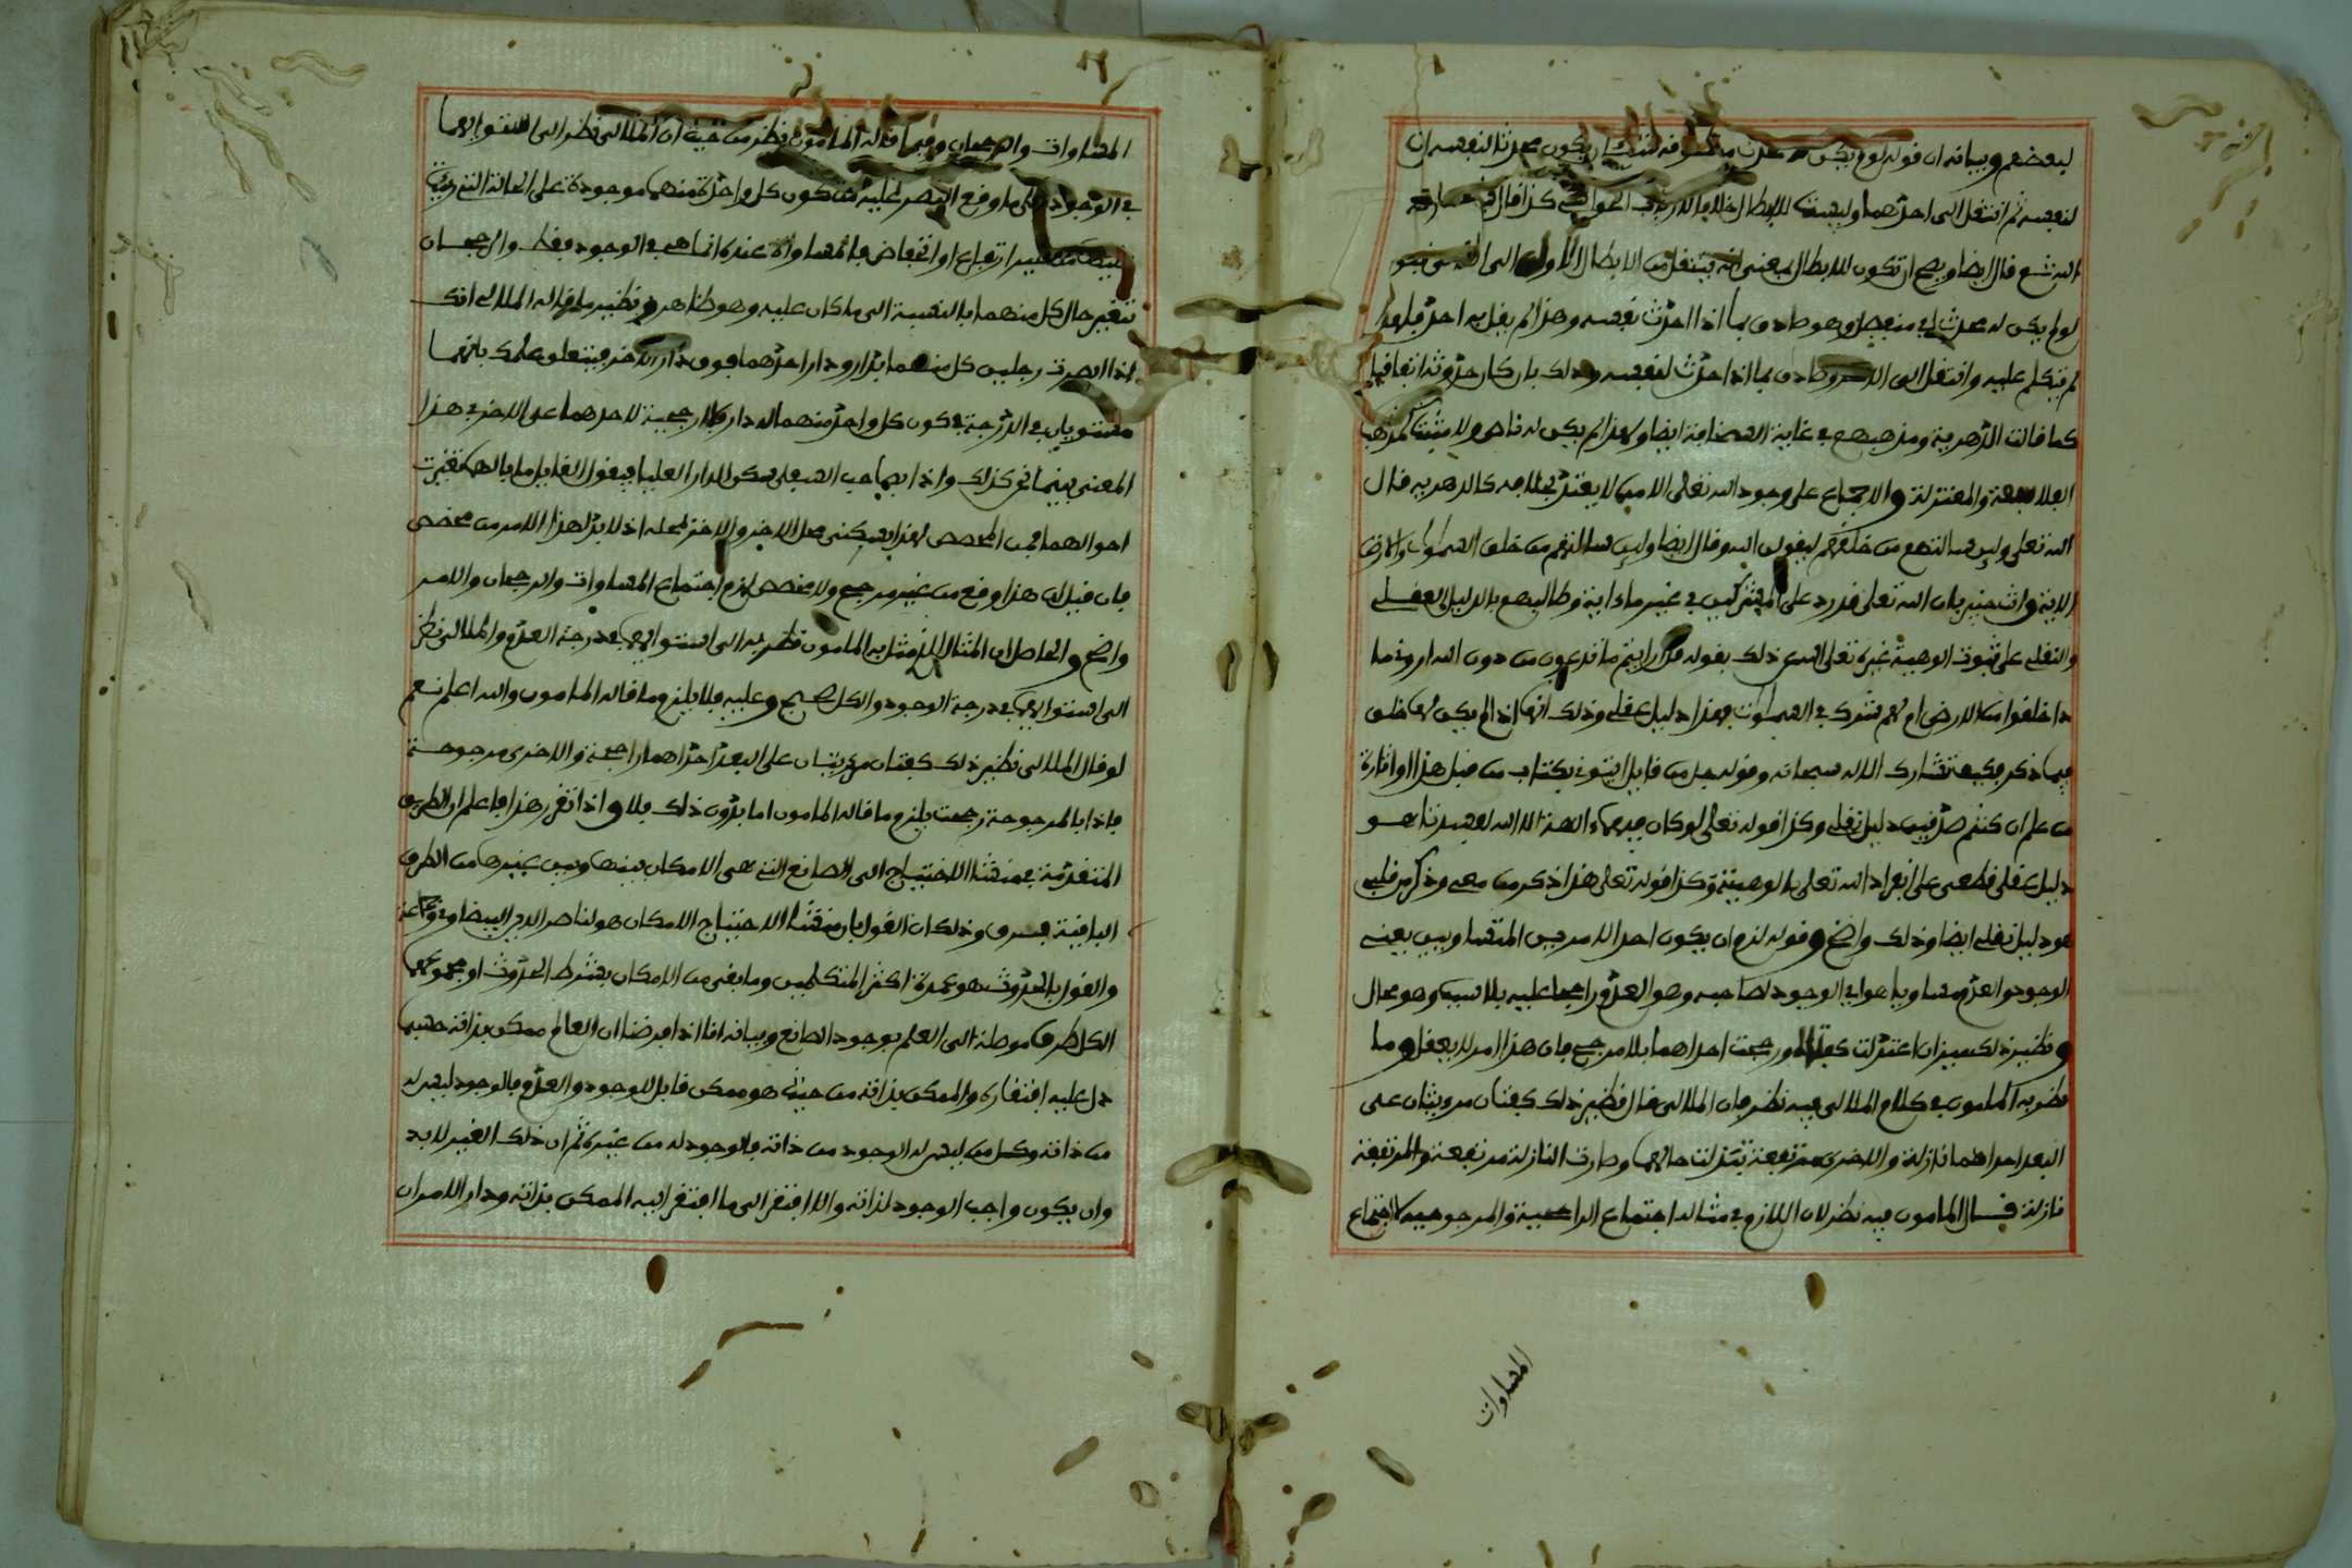 لبعضهم وبيانه ان قوله لو لم يكن يكون محدثا لنفسه ان
لنفسه ثم انتقل الى احدهما وليست للابطال خلافا كذا قال في
الشرع قال ايضا ويصح ان تكون للابطال بمعنى انه ينتقل من الابطال الاول الى
لو لم يكن له محدث وهو صادق بما اذا احدث نفسه وهذا لم يقل به احد فلهذا
لم يتكلم عليه وانتقل الى وصادق بما اذا احدث لنفسه وذلك بان كان حدوثه اتفاقيا
كما قالت الدهرية ومذهبهم في غاية ايضا ولهذا لم يكن له ناصر ولا مثبت لمذهب
الفلاسفة والمعتزلة والاجماع على وجود الله تعلى الا من لا يعتد بخلافه كالدهرية قال
الله تعلى ولين سالتهم من خلقهم ليقولن الله وقال ايضا ولين سالتهم من خلق السموات والارض
الاية وانت خبير بان الله تعلى قد رد على المشركين في غير ما ءاية وطالبهم بالدليل العقلي
والنقلي على ثبوت الوهية غيره تعلى الله عن ذلك بقوله قل ارايتم ما تدعون من دون الله اروني ما
ذا خلقوا من الارض ام لهم شرك في السموات فهذا دليل عقلي وذلك انها اذا لم يكن لها خلق
فيما ذكر فكيف تشارك الاله سبحانه وقوله جل من قايل ايتوني بكتاب من قبل هذا او اثارة
من علم ان كنتم صدقين دليل نقلي وكذا قوله تعلى لو كان فيهما ءالهة الا الله لفسدتا هو
دليل عقلي قطعي على انفراد الله تعلى بالوهيته وكذا قوله تعلى هذا ذكر من معي وذكر من قبلي
هو دليل نقلي ايضا وذلك واضح وقوله لزم ان يكون احد الامرين المتساويين يعني
الوجود والعدم مساويا هو اي الوجود لصاحبه وهو العدم راجحا عليه بلا سبب وهو محال
ونظير ذلك ميزان اعتدلت كفتاه ورجحت احداهما بلا مرجح فان هذا امر لا يعقل وما
نظر به المامون في كلام الملالي فيه نظر فان الملالي قال نظير ذلك كفتان مرءيتان على
البعد احداهما نازلة والاخرى مرتفعة تبدلت حالهما وصارت النازلة مرتفعة والمرتفعة
نازلة قال المامون فيه نظر لان اللازم في مثاله اجتماع الراجحية والمرجوحية لا اجتماع
المساوات
المساوات والرجحان وفيما قاله المامون نظر من حيث ان الملالي نظر الى استوايهما
في الوجود على ما وقع البصر عليه من كون كل واحدة منهما موجودة على الحالة التي رءيت
عليها من غير ارتفاع او انخفاض فالمساواة عنده انما هي في الوجود فقط والرجحان
تغير حال كل منهما بالنسبة الى ما كان عليه وهو ظاهر ونظير ما قاله الملالي انك
اذا ابصرت رجلين كل منهما بدار ودار احدهما فوق دار الاخر فيتعلق علمك بانهما
مستويان في الدرجة في كون كل واحد منهما له دار فلا ارجحية لاحدهما على الاخر في هذا
المعنى بينما هو كذلك واذا بصاحب السفلى سكن الدار العليا فيقول القايل ما بالهما تغيرت
احوالهما فمن المخصص لهذا بسكنى محل الاخر والاخر لمحله اذ لا بد لهذا الامر من مخصص
فان قيل ان هذا وقع من غير مرجح ولا مخصص لزم اجتماع المساوات والرجحان والامر
واضح والحاصل ان المثال الذي مثل به المامون نظر به الى استوايهما في درجة العدم والملالي نظر
الى استوايهما في درجة الوجود والكل صحيح وعليه فلا يلزم ما قاله المامون والله اعلم نعم
لو قال الملالي نظير ذلك كفتان مرءيتان على البعد احداهما راجحة والاخرى مرجوحة
فاذا بالمرجوحة رجحت يلزم ما قاله المامون اما بدون ذلك فلا واذا تقرر هذا فاعلم ان الطريق
المتقدمة في منشا الاحتياج الى الصانع التي هي الامكان بينها وبين غيرها من الطرق
الباقية فرق وذلك ان القول بان منشا الاحتياج الامكان هو لناصر الدين البيضاوي وجماعة
والقول بالحدوث هو عمدة اكثر المتكلمين وما بقي من الامكان بشرط الحدوث او مجموعهما
الكل طرق موصلة الى العلم بوجود الصانع وبيانه انا اذا فرضنا ان العالم ممكن بذاته حسبما
دل عليه افتقاره والممكن بذاته من حيث هو ممكن قابل للوجود والعدم فالوجود ليس له
من ذاته وكل من ليس له الوجود من ذاته فالوجود له من غيره ثم ان ذلك الغير لا بد
وان يكون واجب الوجود لذاته والا افتقر الى ما افتقر اليه الممكن بذاته ودار الامران